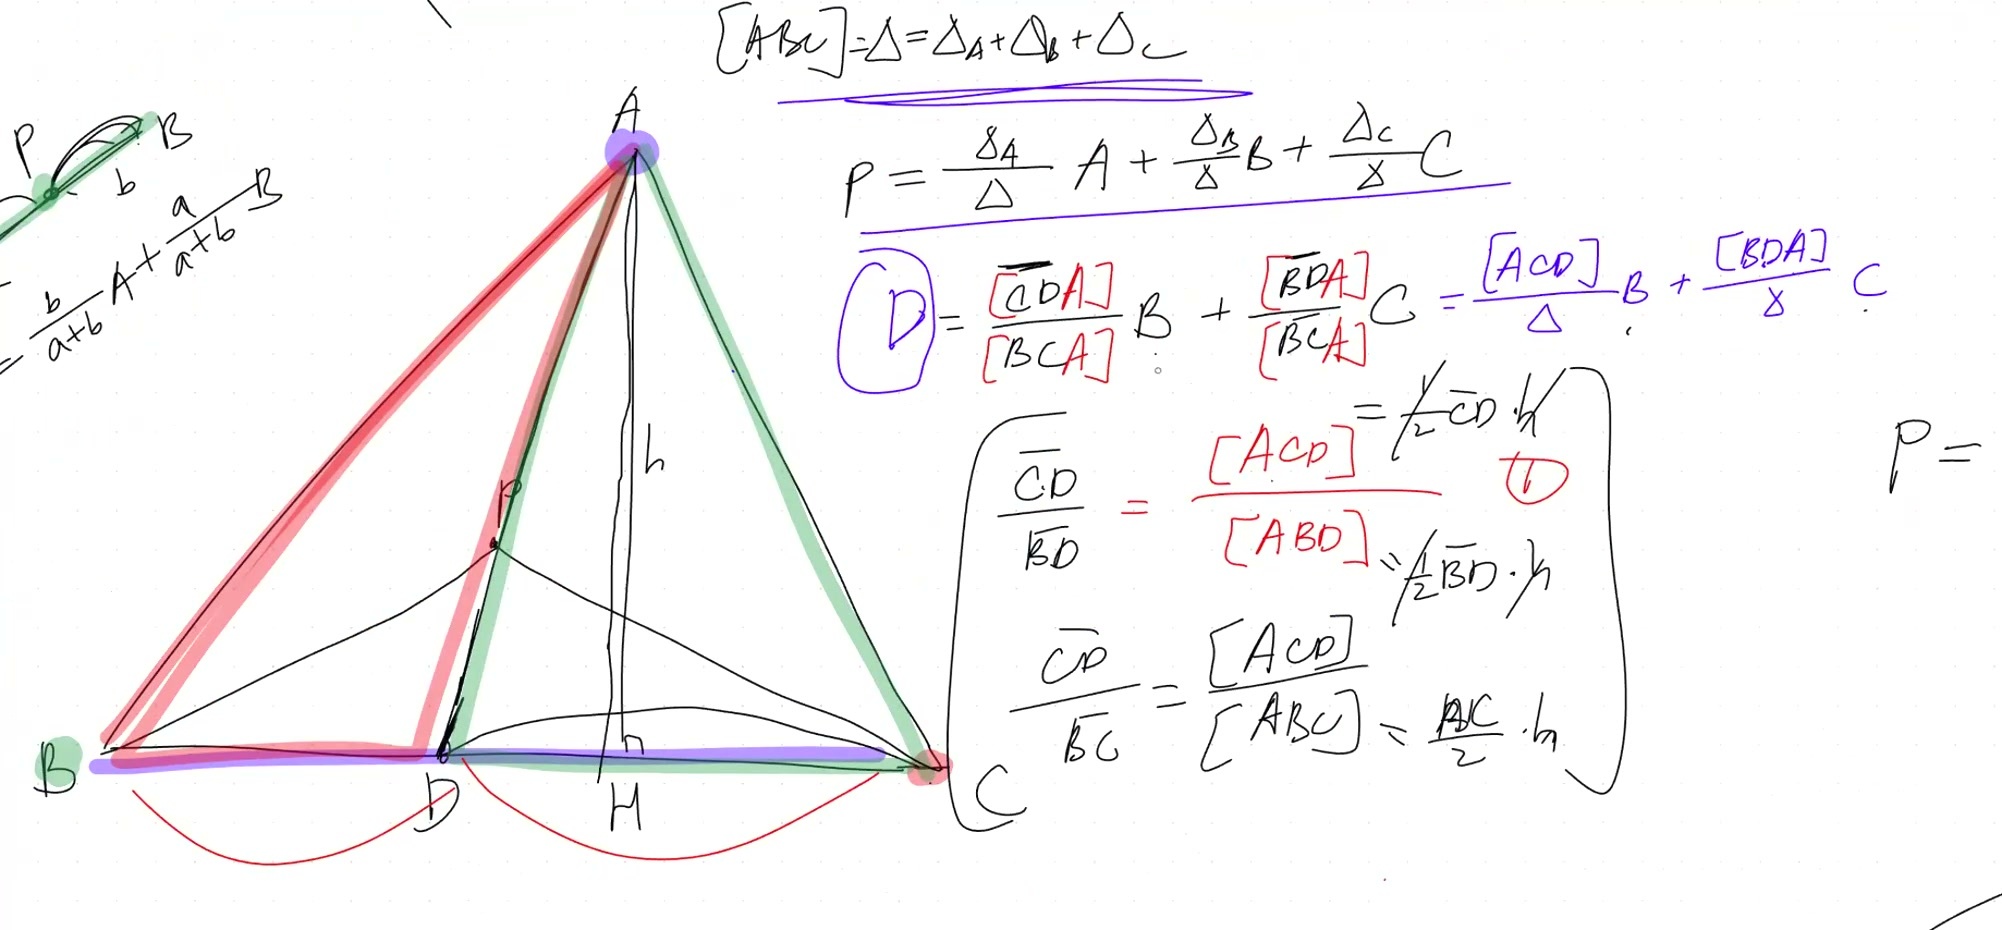 [ABC]=Δ=Δ_A+Δ_B+Δ_C
P = Δ_A/Δ A + Δ_B/Δ B + Δ_C/Δ C
D = [C̅D̅A]/[BCA] B + [B̅D̅A]/[B̅C̅A] C = [ACD]/Δ B + [BDA]/Δ C
C̅D̅/B̅D̅ = [ACD]/[ABD]
= 1/2 C̅D̅ · h
①
= 1/2 B̅D̅ · h
C̅D̅/B̅C̅ = [ACD]/[ABC] = BC/2 · h
P =
P
B
b
= b/(a+b) A + a/(a+b) B
A
h
P
B
D
H
C